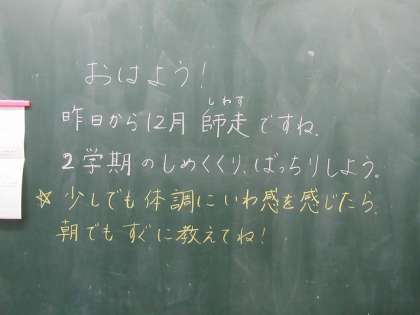 おはよう!
昨日から12月 師走ですね.
しわす
2学期のしめくくり、ばっちりしよう。
☆少しでも体調にいわ感を感じたら、
朝でもすぐに教えてね!